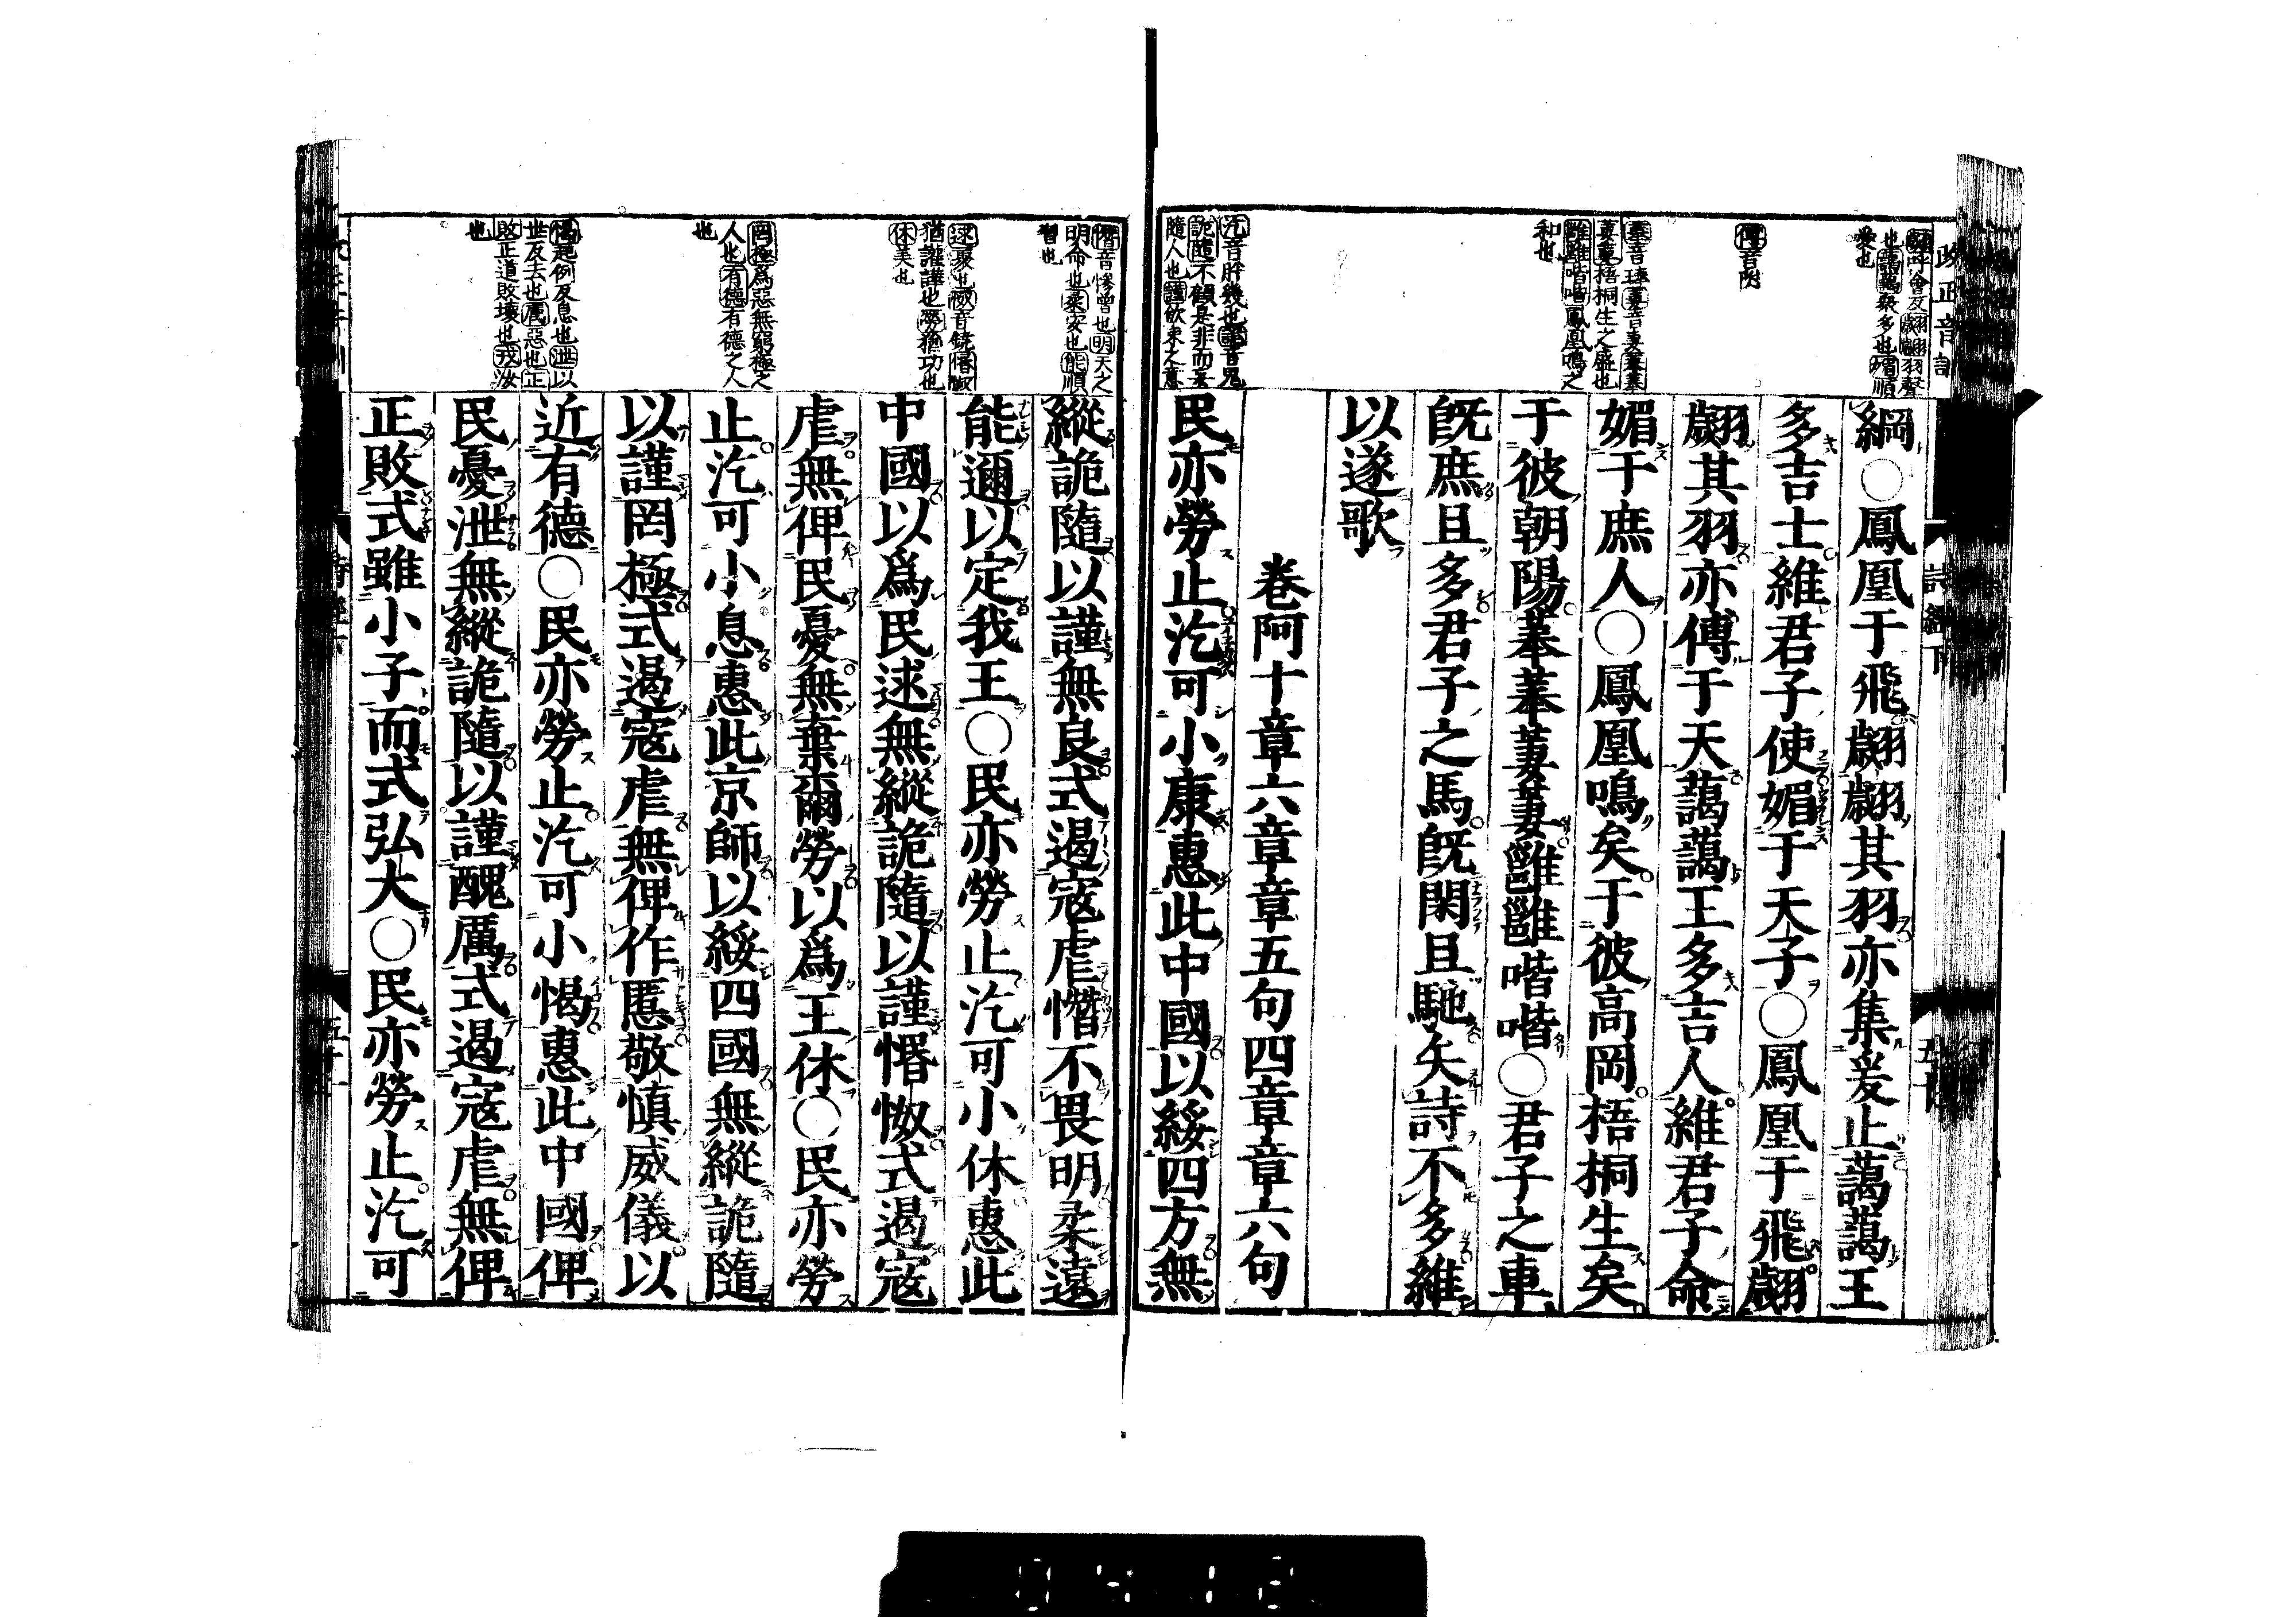 改正音訓
詩經下
五十
翽呼會反翽翽羽聲
也藹藹衆多也媚順
愛也
傅音附
菶音琫萋音妻菶菶
萋萋梧桐生之盛也
雝雝喈喈鳳凰鳴之
和也
汔音肸幾也詭音鬼
詭隨不顧是非而妄
隨人也謹歛束之意
綱○鳳凰于飛翽翽其羽亦集爰止藹藹王
多吉士維君子使媚于天子○鳳凰于飛翽
翽其羽亦傅于天藹藹王多吉人維君子命
媚于庶人○鳳凰鳴矣于彼高岡梧桐生矣
于彼朝陽菶菶萋萋雝雝喈喈○君子之車
旣庶且多君子之馬旣閑且馳矢詩不多維
以遂歌
卷阿十章六章章五句四章章六句
民亦勞止汔可小康惠此中國以綏四方無
憯音慘曾也明天之
明命也柔安也能順
習也
逑聚也惽音昏怓
猶讙譁也勞猶功也
休美也
罔極爲惡無窮極之
人也有德有德之人
也
愒起例反息也泄以
世反去也厲惡也正
敗正道敗壞也戎汝
也
縱詭隨以謹無良式遏寇虐憯不畏明柔遠
能邇以定我王○民亦勞止汔可小休惠此
中國以爲民逑無縱詭隨以謹惽怓式遏寇
虐無俾民憂無棄爾勞以爲王休○民亦勞
止汔可小息惠此京師以綏四國無縱詭隨
以謹罔極式遏寇虐無俾作慝敬愼威儀以
近有德○民亦勞止汔可小愒惠此中國俾
民憂泄無縱詭隨以謹醜厲式遏寇虐無俾
正敗式雖小子而式弘大○民亦勞止汔可